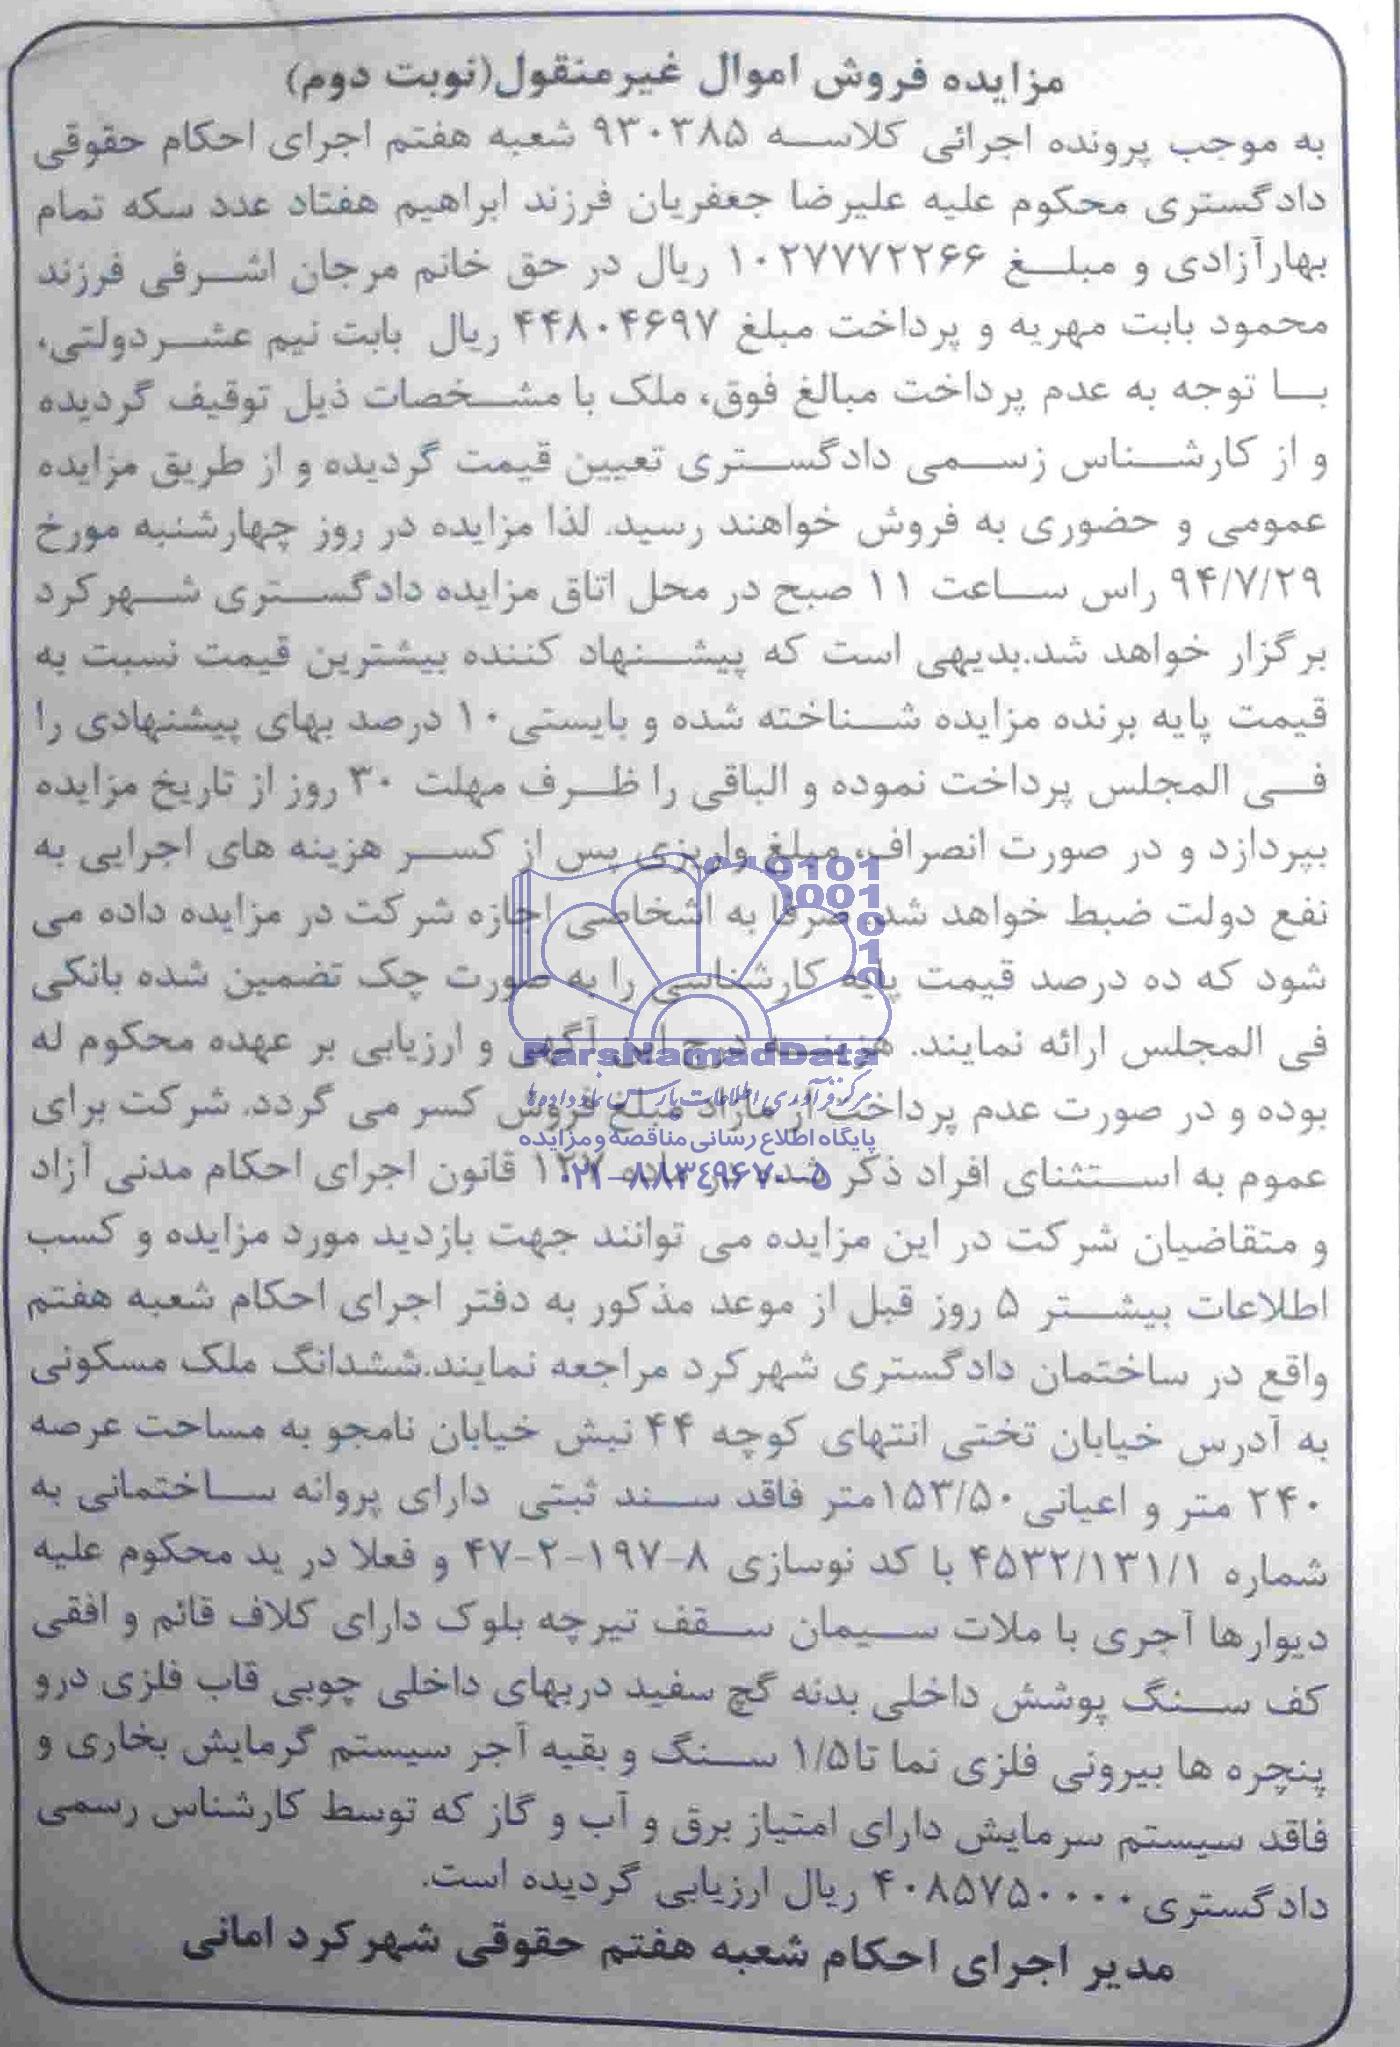 مزایده فروش اموال غیرمنقول(نوبت دوم)
به موجب پرونده اجرائی کلاسه ۹۳۰۳۸۵ شعبه هفتم اجرای احکام حقوقی
دادگستری محکوم علیه علیرضا جعفریان فرزند ابراهیم هفتاد عدد سکه تمام
بهارآزادی و مبلغ ۱۰۲۷۷۷۲۲۶۶ ریال در حق خانم مرجان اشرفی فرزند
محمود بابت مهریه و پرداخت مبلغ ۴۴۸۰۴۶۹۷ ریال بابت نیم عشردولتی،
با توجه به عدم پرداخت مبالغ فوق، ملک با مشخصات ذیل توقیف گردیده
و از کارشناس رسمی دادگستری تعیین قیمت گردیده و از طریق مزایده
عمومی و حضوری به فروش خواهند رسید. لذا مزایده در روز چهارشنبه مورخ
۹۴/۷/۲۹ راس ساعت ۱۱ صبح در محل اتاق مزایده دادگستری شهرکرد
برگزار خواهد شد.بدیهی است که پیشنهاد کننده بیشترین قیمت نسبت به
قیمت پایه برنده مزایده شناخته شده و بایستی ۱۰ درصد بهای پیشنهادی را
فی المجلس پرداخت نموده و الباقی را ظرف مهلت ۳۰ روز از تاریخ مزایده
بپردازد و در صورت انصراف، مبلغ واریزی پس از کسر هزینه های اجرایی به
نفع دولت ضبط خواهد شد. صرفا به اشخاصی اجازه شرکت در مزایده داده می
شود که ده درصد قیمت پایه کارشناسی را به صورت چک تضمین شده بانکی
فی المجلس ارائه نمایند. هزینه درج این آگهی و ارزیابی بر عهده محکوم له
ParsNamadData
مرکز فرآوری اطلاعات پارس نماد داده ها
بوده و در صورت عدم پرداخت از مازاد مبلغ فروش کسر می گردد. شرکت برای
پایگاه اطلاع رسانی مناقصه و مزایده
عموم به استثنای افراد ذکر شده در ماده ۱۲۷ قانون اجرای احکام مدنی آزاد
۰۲۱-۸۸۳۴۹۶۷۰-۵
و متقاضیان شرکت در این مزایده می توانند جهت بازدید مورد مزایده و کسب
اطلاعات بیشتر ۵ روز قبل از موعد مذکور به دفتر اجرای احکام شعبه هفتم
واقع در ساختمان دادگستری شهرکرد مراجعه نمایند.ششدانگ ملک مسکونی
به آدرس خیابان تختی انتهای کوچه ۴۴ نبش خیابان نامجو به مساحت عرصه
۲۴۰ متر و اعیانی ۱۵۳/۵۰متر فاقد سند ثبتی دارای پروانه ساختمانی به
شماره ۴۵۳۲/۱۳۱/۱ با کد نوسازی ۸-۱۹۷-۲-۴۷ و فعلا در ید محکوم علیه
دیوارها آجری با ملات سیمان سقف تیرچه بلوک دارای کلاف قائم و افقی
کف سنگ پوشش داخلی بدنه گچ سفید دربهای داخلی چوبی قاب فلزی درو
پنچره ها بیرونی فلزی نما تا۱/۵ سنگ و بقیه آجر سیستم گرمایش بخاری و
فاقد سیستم سرمایش دارای امتیاز برق و آب و گاز که توسط کارشناس رسمی
دادگستری ۴۰۸۵۷۵۰۰۰۰ ریال ارزیابی گردیده است.
مدیر اجرای احکام شعبه هفتم حقوقی شهرکرد امانی